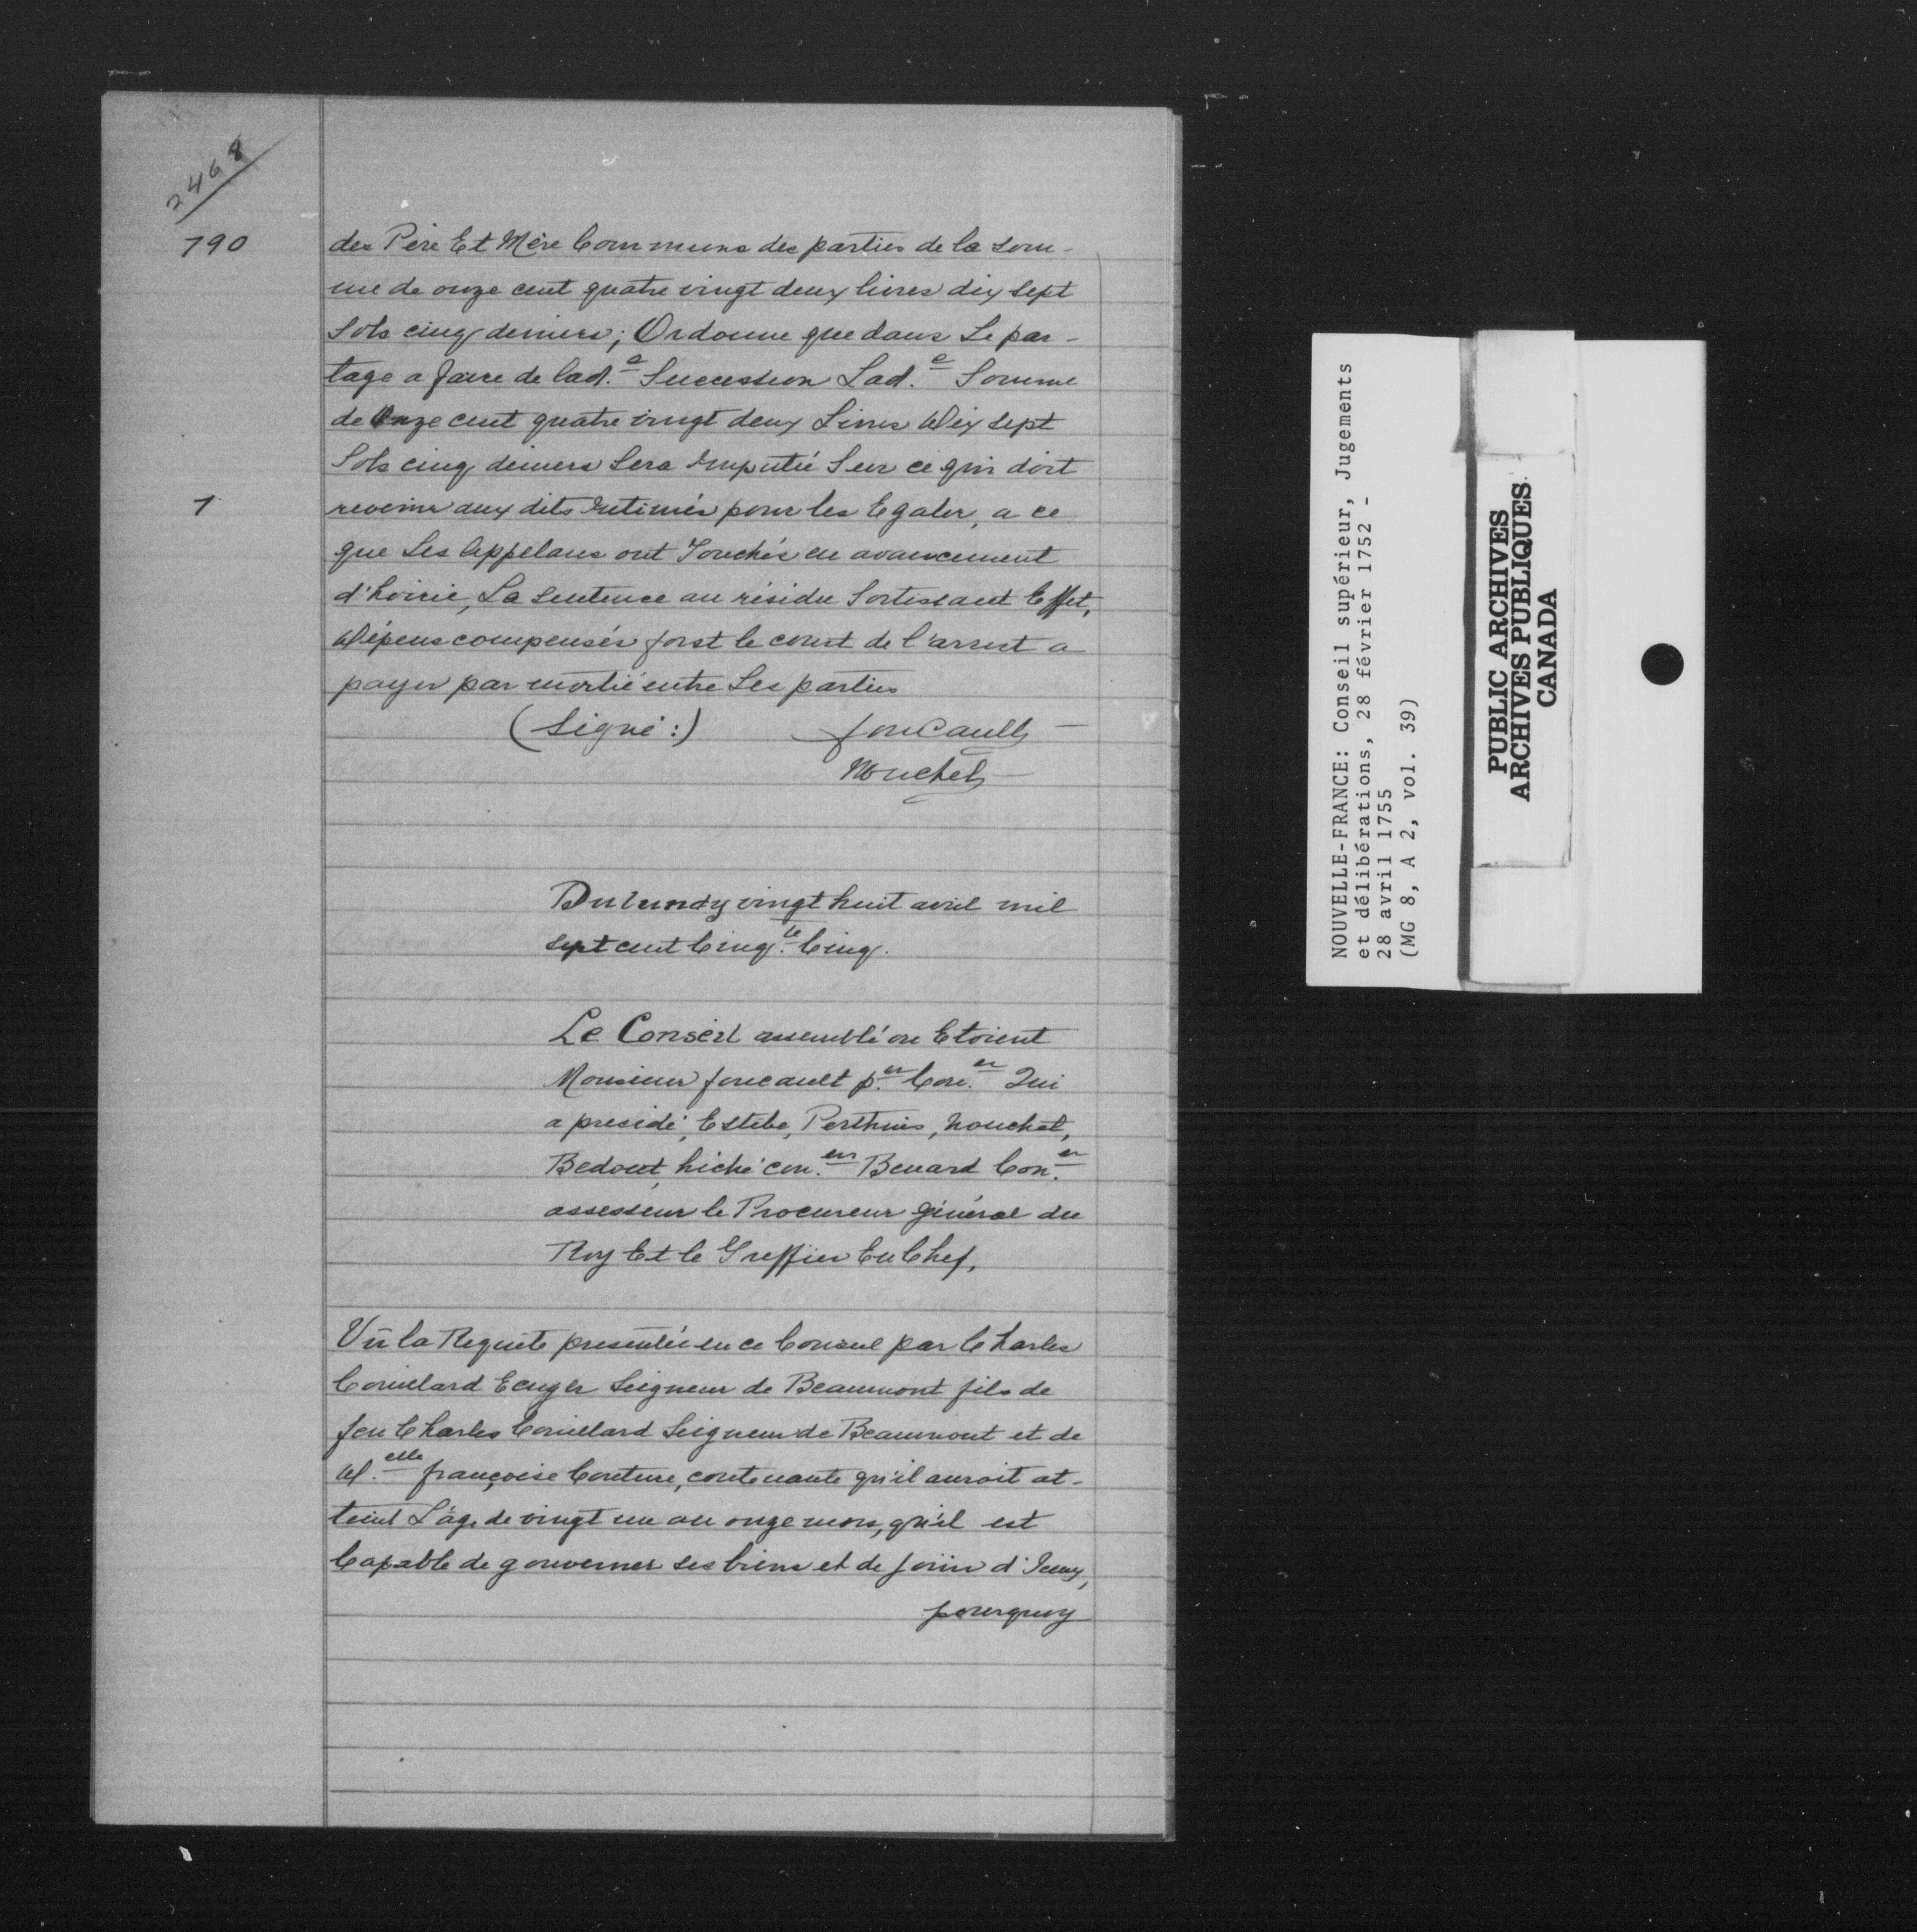 2468
790
des Père Et Mère Communs des parties de la som-
me de onze cent quatre vingt deux livres dix sept
Sols cinq deniers; Ordonne que dans Le par-
tage a faire de lad.e Succession Lad.e Somme
de Onze cent quatre vingt deux Livres Dix sept
Sols cinq deniers Sera Imputée Sur ce qui doit
1
revenir aux dits Intimés pour les Egaler, a ce
que Les Appelans ont Touchés en avancement
d'hoirie, La Sentence au résidu Sortissant Effet,
Dépens compensés forst le coust de l'arrest a
payer par moitié entre Les parties
(Signé:) foucault
Nouchet
Du Lundy vingt huit avril mil
sept cent Cinq.te Cinq.
Le Conseil assemblé ou Etoient
Monsieur foucault p.er Con.er Qui
a presidé, Estebe, Perthuis, Nouchet,
Bedout, hiché con.ers Benard Con.er
assesseur le Procureur général du
Roy Et le Greffier En Chef,
Vû la Requete presentée en ce Conseil par Charles
Couillard Ecuyer Seigneur de Beaumont fils de
feu Charles Couillard Seigneur de Beaumont et de
D.elle françoise Couture, contenante qu'il auroit at-
teint L'âge de vingt un an onze mois, qu'il est
Capable de gouverner ses biens et de joüir d'Iceux,
pourquoy
NOUVELLE-FRANCE: Conseil supérieur, Jugements
et délibérations, 28 février 1752 -
28 avril 1755
(MG 8, A 2, vol. 39)
PUBLIC ARCHIVES
ARCHIVES PUBLIQUES
CANADA